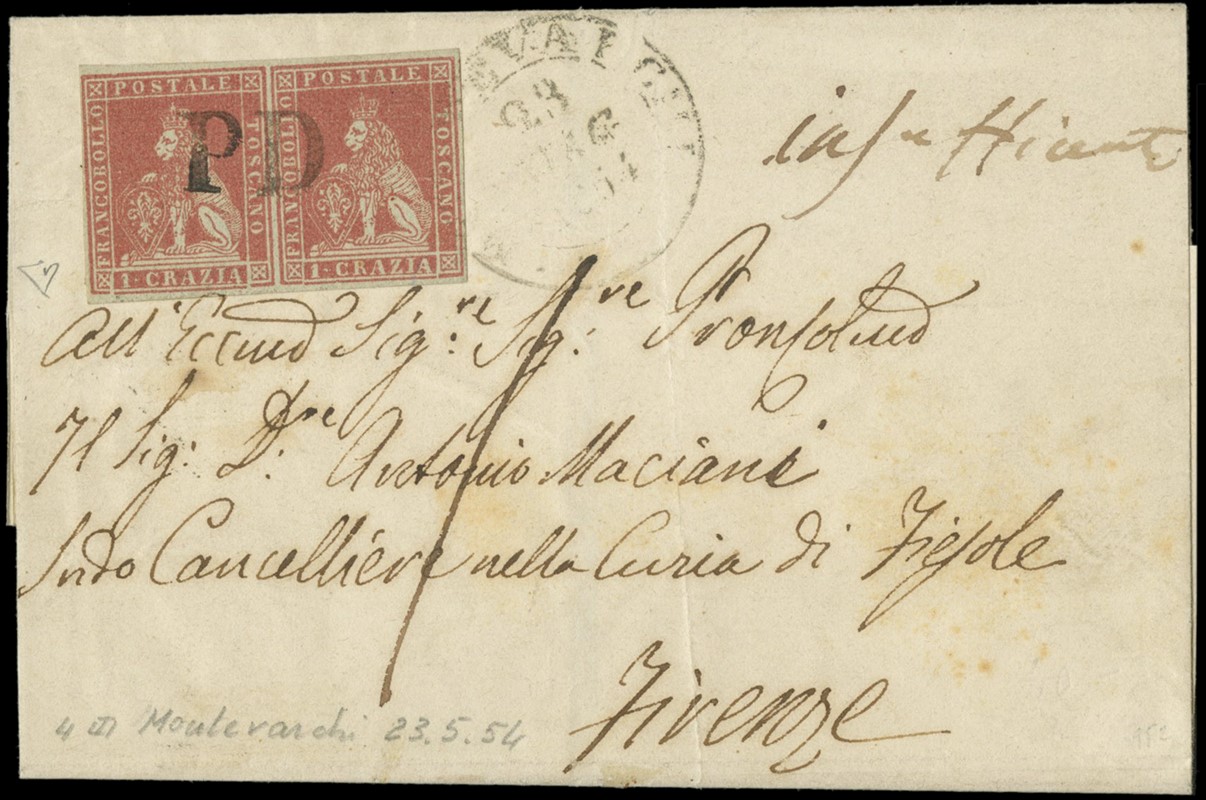 POSTALE
FRANCOBOLLO
TOSCANO
1 - CRAZIA
POSTALE
FRANCOBOLLO
TOSCANO
1 - CRAZIA
PD
EVARCHI
23
MAG
insufficiente
1
All'Eccmo Sig:re Sig:re Pron Colmo
Il Sig: D:re Antonio Maciani
Cancelliere nella Curia di Fiesole
Firenze
Montevarchi 23.5.54